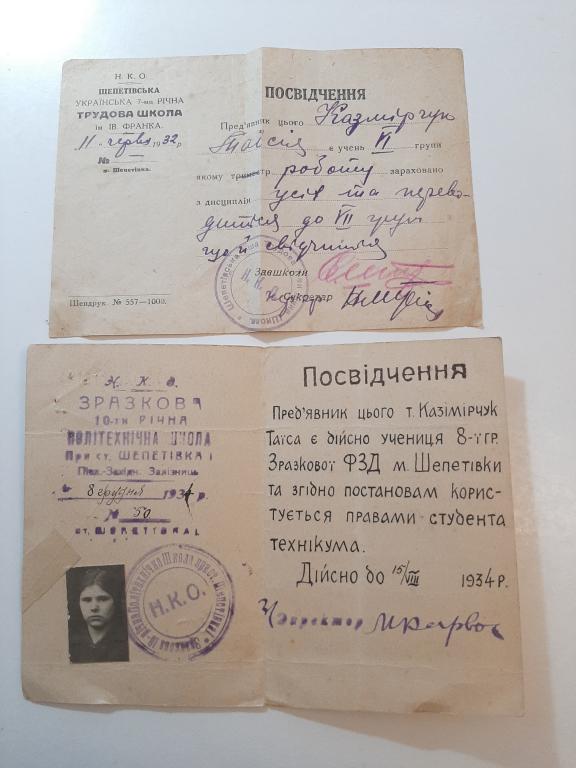 Н. К. О
ШЕПЕТІВСЬКА
УКРАЇНСЬКА 7-ми РІЧНА
ТРУДОВА ШКОЛА
ім ІВ. ФРАНКА.
11 червн 1932 р
№
м. Шепетівка.
Шепдрук. № 557—1000.
ПОСВІДЧЕННЯ
Пред'явник цього Казмірчук
Таїсія є учень VI групи
якому триместр роботу зараховано
з дисциплін усіх та перево-
диться до VII груп
що й свідчиться
Завшколи
Секретар
Н. К. О.
ЗРАЗКОВА
10-ти РІЧНА
ПОЛІТЕХНІЧНА ШКОЛА
При ст. ШЕПЕТІВКА І
Півд.-Західн. Залізниць
8 грудня 1934 р.
№ 50
ст. ШЕПЕТІВКА І
Н.К.О.
Посвідчення
Пред'явник цього т. Казімірчук
Таїса є дійсно учениця 8-ї гр.
Зразкової ФЗД м. Шепетівки
та згідно постановам корис-
тується правами студента
технікума.
Дійсно до 15/VIII 1934 р.
Директор